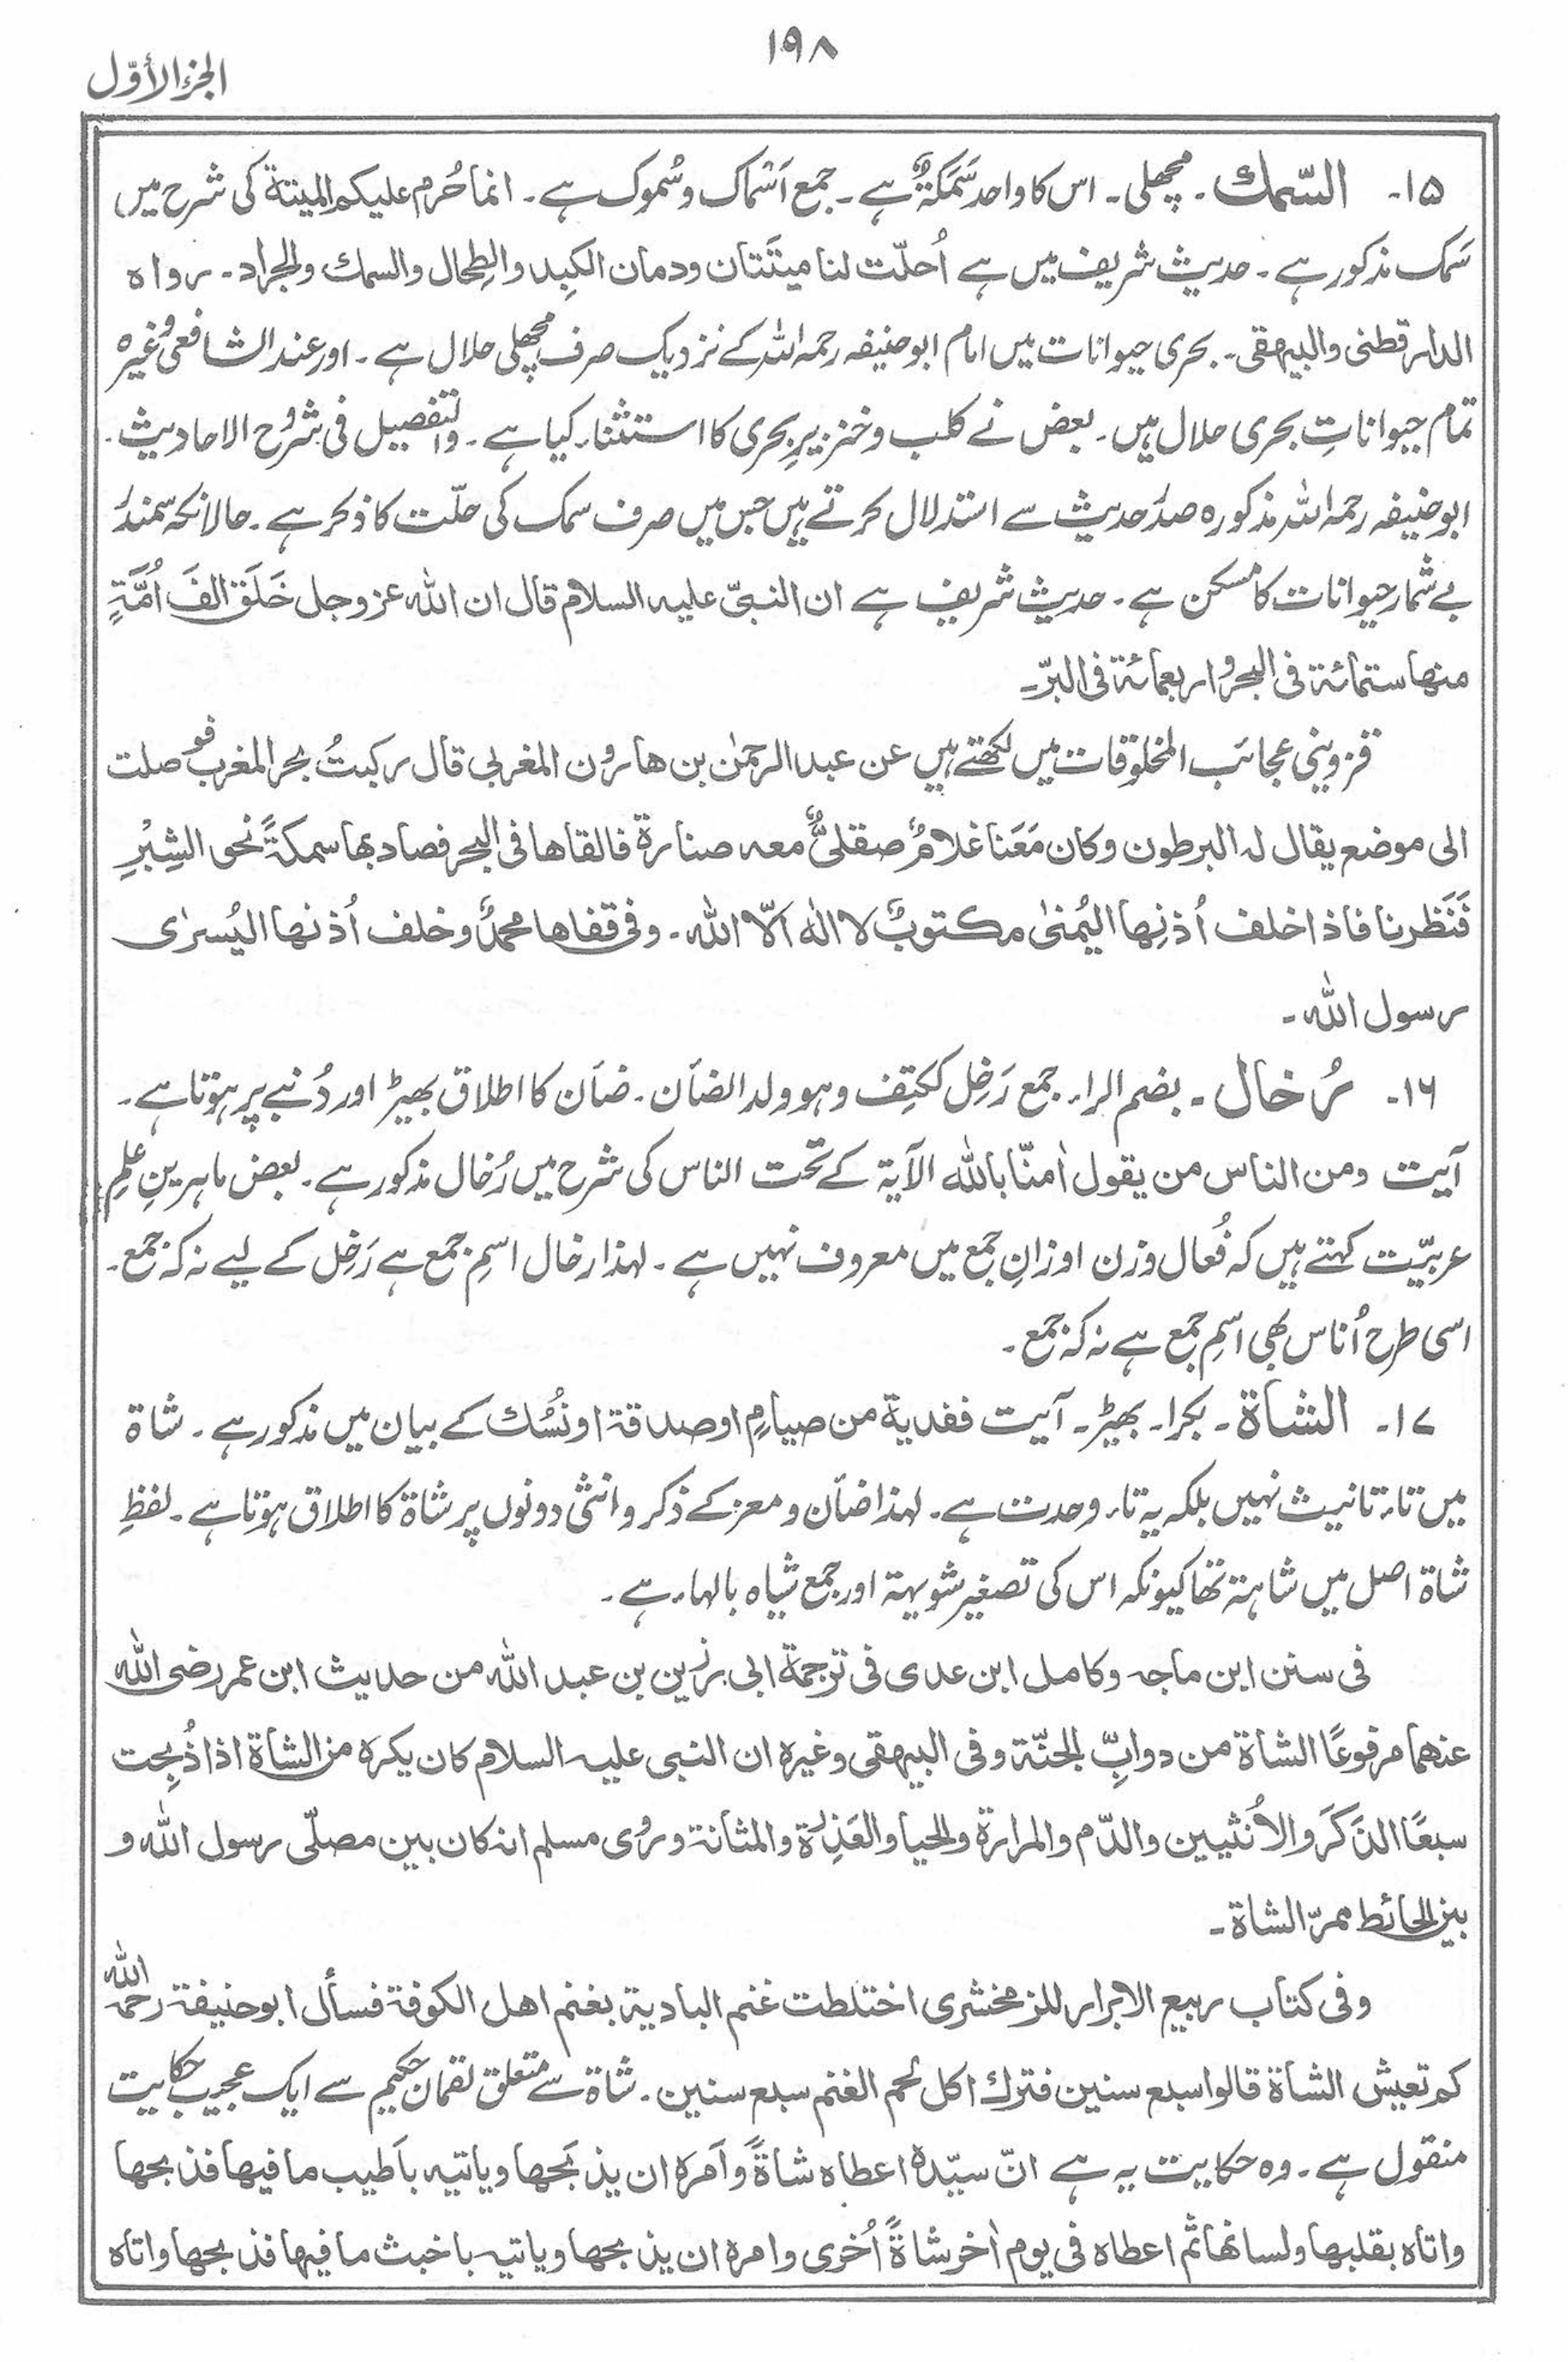 ۱۹۸
الجزء الأوّل
۱۵۔ السّمك ۔ مچھلی ۔ اس کا واحد سَمَكَةٌ ہے ۔ جمع اَسْماک و سُموک ہے ۔ انما حُرم علیکم المیتة کی شرح میں
سَمَک مذکور ہے ۔ حدیث شریف میں ہے اُحلّت لنا میتَتان ودمان الکبِد والطِحال والسمك والجراد ۔ رواه
الدارقطنی والبیهقی ۔ بحری حیوانات میں امام ابو حنیفہ رحمہ اللہ کے نزدیک صرف مچھلی حلال ہے ۔ اور عند الشافعی وغیرہ
تمام حیواناتِ بحری حلال ہیں ۔ بعض نے کلب و خنزیرِ بحری کا استثناء کیا ہے ۔ والتفصیل فی شروح الاحادیث ۔
ابو حنیفہ رحمہ اللہ مذکورہ صدر حدیث سے استدلال کرتے ہیں جس میں صرف سمک کی حلّت کا ذکر ہے ۔ حالانکہ سمندر
بے شمار حیوانات کا مسکن ہے ۔ حدیث شریف ہے ان النبیّ علیه السلام قال ان الله عز وجل خَلَقَ الفَ اُمَّةٍ
منها ستمائة فی البحر واربعمائة فی البرّ ۔
قزوینی عجائب المخلوقات میں لکھتے ہیں عن عبد الرحمٰن بن هارون المغربی قال رکبتُ بحر المغرب فوصلت
الی موضع یقال له البرطون وکان مَعَنا غلامٌ صقلیٌّ معه صنارة فالقاها فی البحر فصاد بها سمکةً نحو الشِبْرِ
فَنَظَرنا فاذا خلف اُذنِها الیُمنیٰ مکتوبٌ لا الٰه الّا الله ۔ وفی قفاها محمدٌ وخلف اُذنها الیُسریٰ
رسول الله ۔
۱۶۔ رُخال ۔ بضم الراء ۔ جمع رَخِل ککتِف وهو ولد الضأن ۔ ضأن کا اطلاق بھیڑ اور دُنبے پر ہوتا ہے ۔
آیت ومن الناس من یقول اٰمنّا بالله الآیة کے تحت الناس کی شرح میں رُخال مذکور ہے ۔ بعض ماہرینِ علمِ
عربیّت کہتے ہیں کہ فُعال وزن اوزانِ جمع میں معروف نہیں ہے ۔ لہذا رخال اسمِ جمع ہے رَخِل کے لیے نہ کہ جمع ۔
اسی طرح اُناس بھی اسمِ جمع ہے نہ کہ جمع ۔
۱۷۔ الشاة ۔ بکرا ۔ بھیڑ ۔ آیت ففدیة من صیامٍ او صدقة او نسُك کے بیان میں مذکور ہے ۔ شاة
میں تاء تانیث نہیں بلکہ یہ تاء وحدت ہے ۔ لہذا ضأن و معز کے ذکر و انثی دونوں پر شاة کا اطلاق ہوتا ہے ۔ لفظِ
شاة اصل میں شاهة تھا کیونکہ اس کی تصغیر شویهة اور جمع شیاه بالہاء ہے ۔
فی سنن ابن ماجه وکامل ابن عدی فی ترجمة ابی رزین بن عبد الله من حدیث ابن عمر رضی الله
عنهما مرفوعًا الشاة من دوابِّ الجنّة وفی البیهقی وغیره ان النبی علیه السلام کان یکره من الشاة اذا ذُبِحت
سبعًا الذَکَرَ والاُنثیین والدّم والمرارة والحیا والعَذِرَة والمثانة وروی مسلم انه کان بین مصلّی رسول الله و
بین الحائط ممرّ الشاة ۔
وفی کتاب ربیع الابرار للزمخشری اختلطت غنم البادیة بغنم اهل الکوفة فسأل ابو حنیفة رحمہ اللہ
کم تعیش الشاة قالوا سبع سنین فترك اکل لحم الغنم سبع سنین ۔ شاة سے متعلق لقمان حکیم سے ایک عجیب حکایت
منقول ہے ۔ وہ حکایت یہ ہے انّ سیّده اعطاه شاةً واَمَره ان یذبَحها ویاتیه باَطیب ما فیها فذبحها
واتاه بقلبها ولسانها ثم اعطاه فی یوم اٰخر شاةً اُخری وامره ان یذبحها ویاتیه باخبث ما فیها فذبحها واتاه